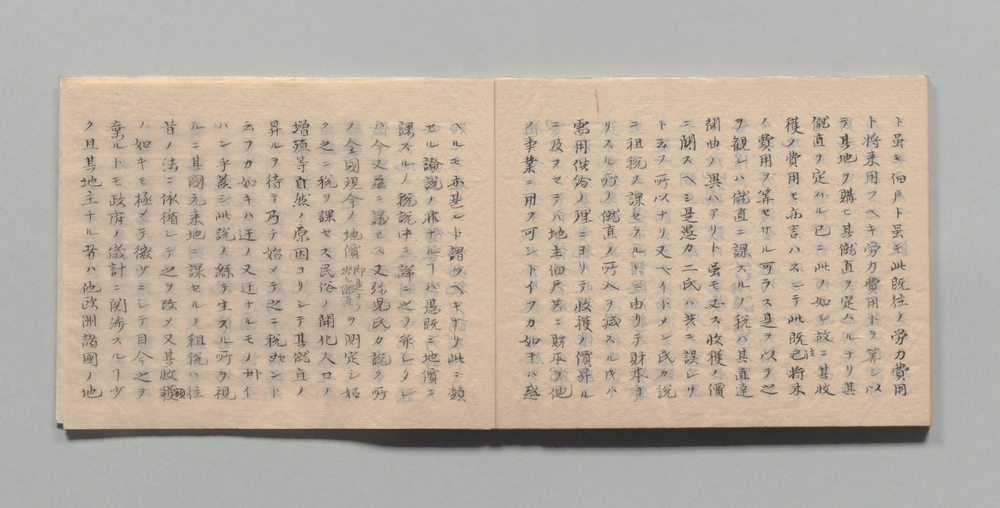 ト雖モ佃戸ト雖モ此既往ノ労力費用
ト将来用フヘキ労力費用トヲ算シ以
テ其地ヲ購ヒ其僦直ヲ定ムルナリ其
僦直ヲ定ムル已ニ此ノ如シ故ニ其收
獲ノ費用モ亦言ハスシテ此既往将来
ノ費用ヲ算セサル可ラス是ヲ以テ之
ヲ観レハ僦直ニ課スルノ税ハ其直達
間曲ノ異ハアリト雖モ又收獲ノ價
ニ関スヘシ是愚カ二氏ハ共ニ誤レリ
トスル所以ナリ又ベイトメン氏カ説
ニ租税ヲ課セラルヽニ由リテ財本ヨ
リスル所ノ僦直ノ所入ヲ減スル氏ハ
需用供給ノ理ニヨリテ收獲ノ價昇ル
ニ及フマテハ地主佃戸共ニ財本ヲ他
ノ事業ニ用ス可シトイフカ如キハ惑
ヘルモ亦甚シト謂ツヘキナリ此ニ類
セル論説ノ非ナルハ愚既ニ地價ニ
課スルノ税説中ニ詳ニ之ヲ示シタレ
ハ今又茲ニ論セス又弥児氏カ説ク所
ノ全國現今ノ地價ヲ測定シ始
ク之ニ税ヲ課セス民俗ノ開化人口ノ
増殖等自然ノ原因ヨリシテ其僦直ノ
昇ルヲ待テ乃テ始メテ之ニ税セント
云フカ如キハ迂ノ又迂ナルモノト
ハン乎蓋シ此説ノ縁テ生スル所ヲ視
ルニ其國元来地ニ課セルノ租税ハ往
昔ノ法ニ依循シテ之ヲ改メス其收額
ノ如キモ極メテ微少ニシテ目今之ヲ
棄ルトモ政府ノ歳計ニ関渉スル少
ク且其地主ナル者ハ他欧洲諸國ノ地